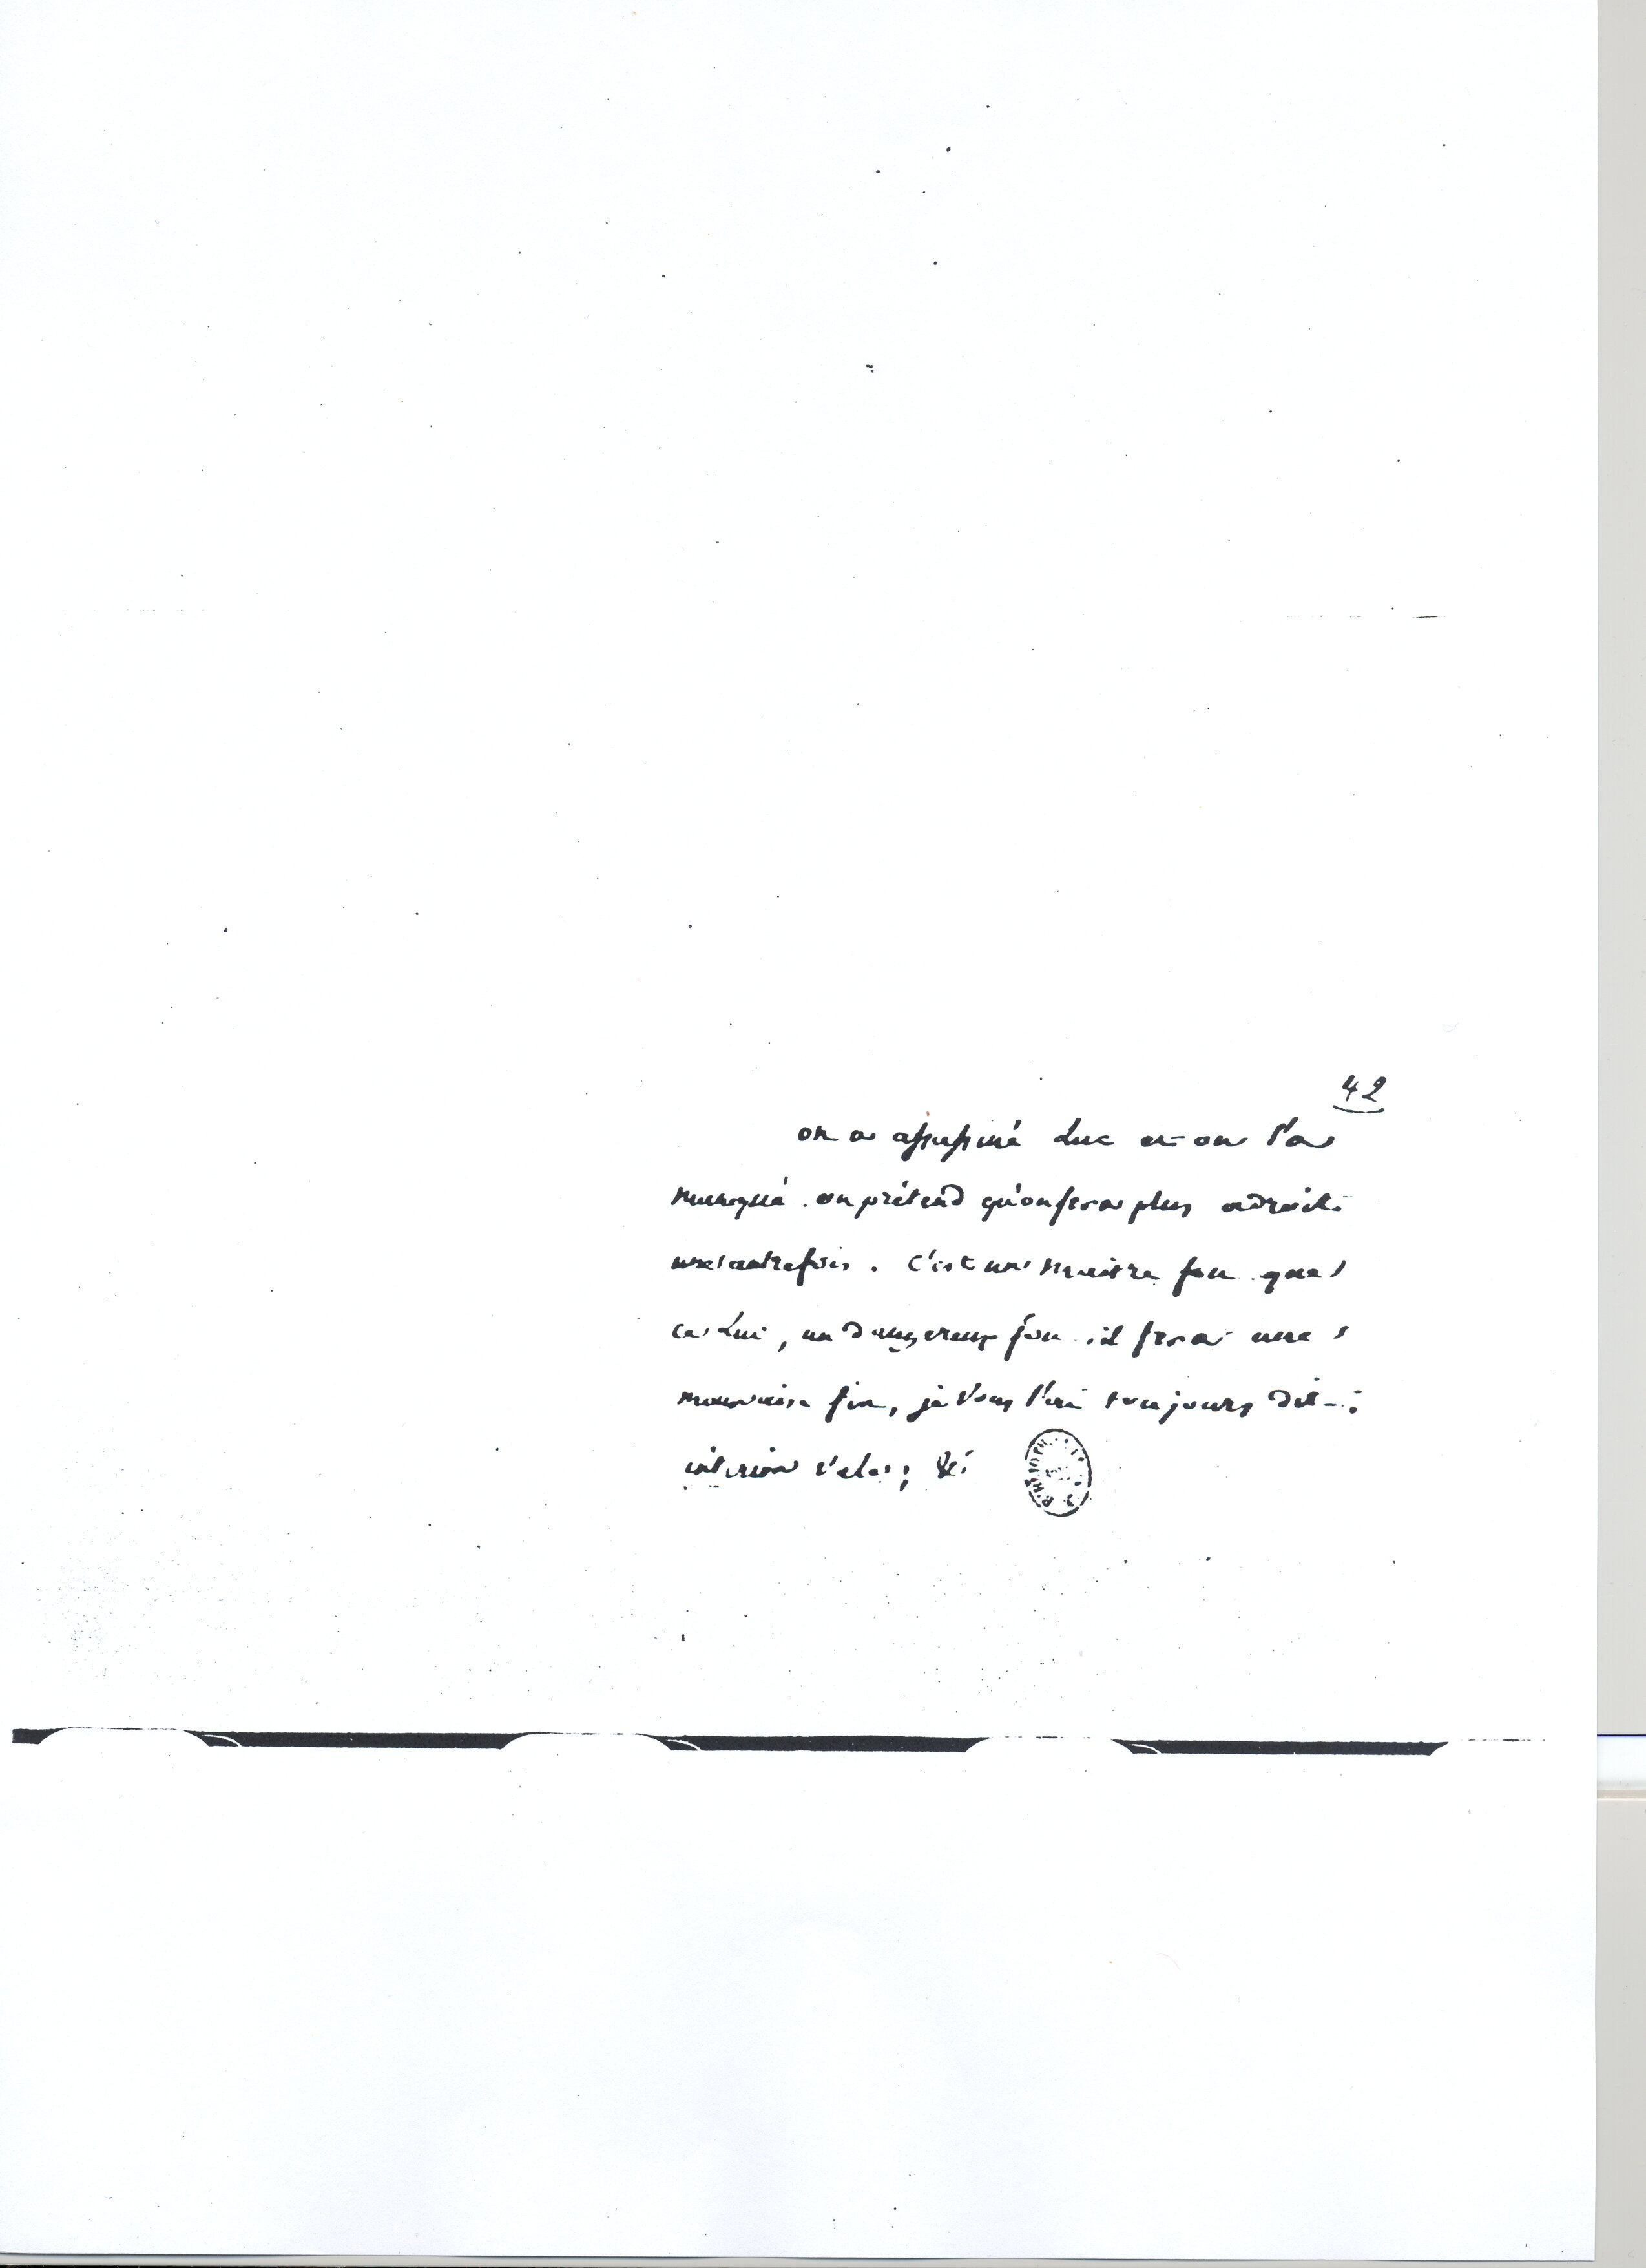 42
on a assassiné Luc et on l'a
manqué. on prétend qu'on sera plus adroit
une autre fois. C'est un maitre fou que
ce Luc, un dangereux fou. il fera une
mauvaise fin, je vous l'ai toujours dit.
interim vale; &c